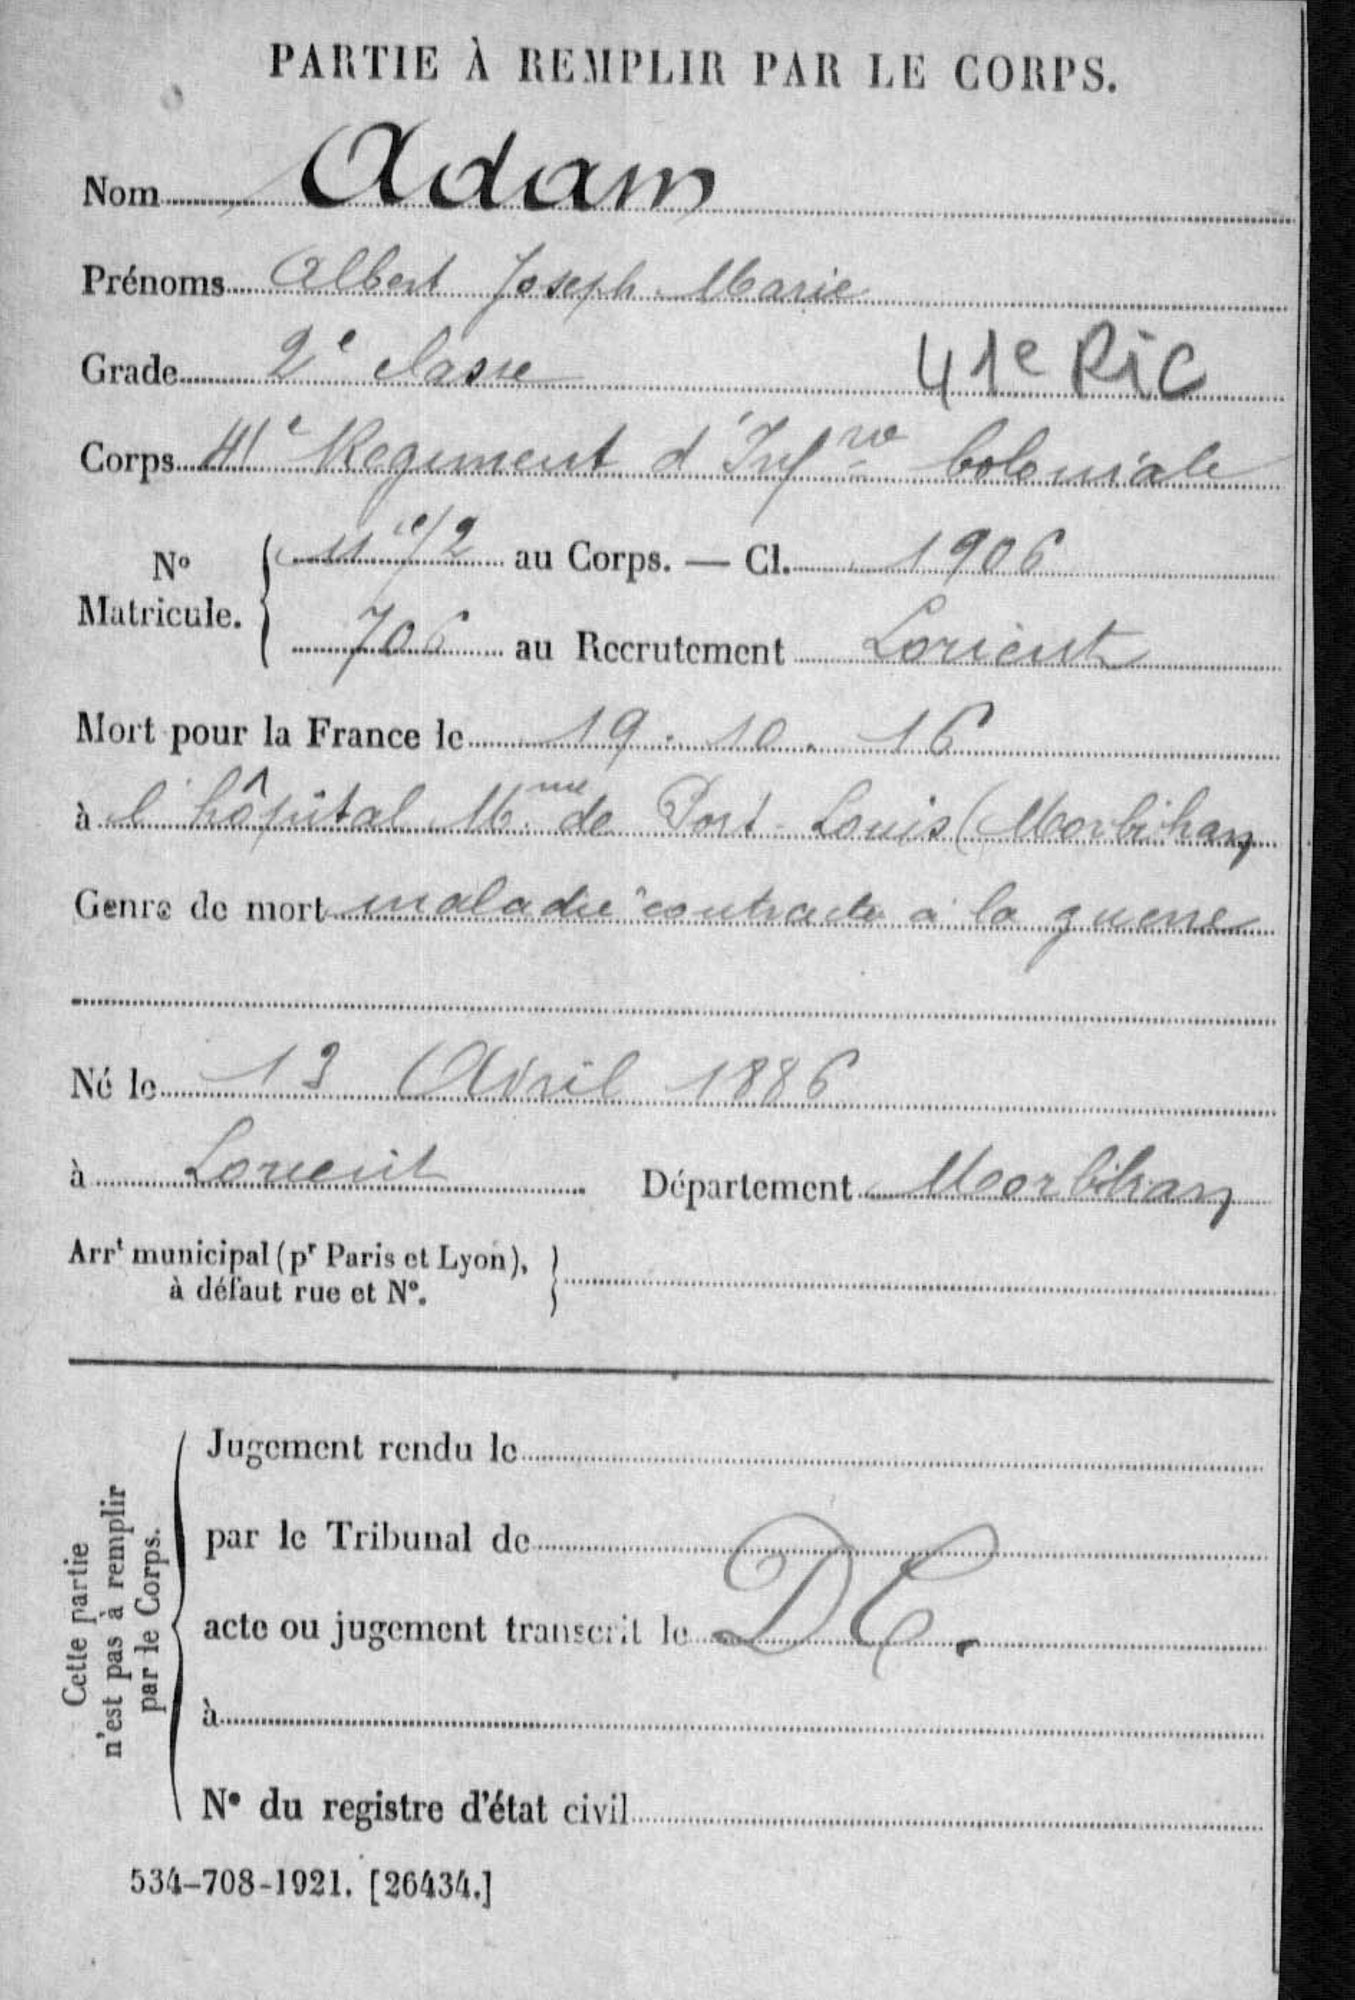 PARTIE À REMPLIR PAR LE CORPS.
Nom Adam
Prénoms Albert Joseph Marie
Grade 2e classe 41e RiC
Corps 41e Regiment d'Infrie Coloniale
No Matricule. au Corps. — Cl. 1906
706 au Recrutement Lorient
Mort pour la France le 19. 10. 16
à l'hôpital Mme de Port-Louis (Morbihan
Genre de mort maladie contracte à la guerre
Né le 13 Avril 1886
à Lorient Département Morbihan
Arrt municipal (pr Paris et Lyon),
à défaut rue et No.
Cette partie
n'est pas à remplir
par le Corps.
Jugement rendu le
par le Tribunal de
acte ou jugement transcrit le DC.
à
No du registre d'état civil
534-708-1921. [26434.]